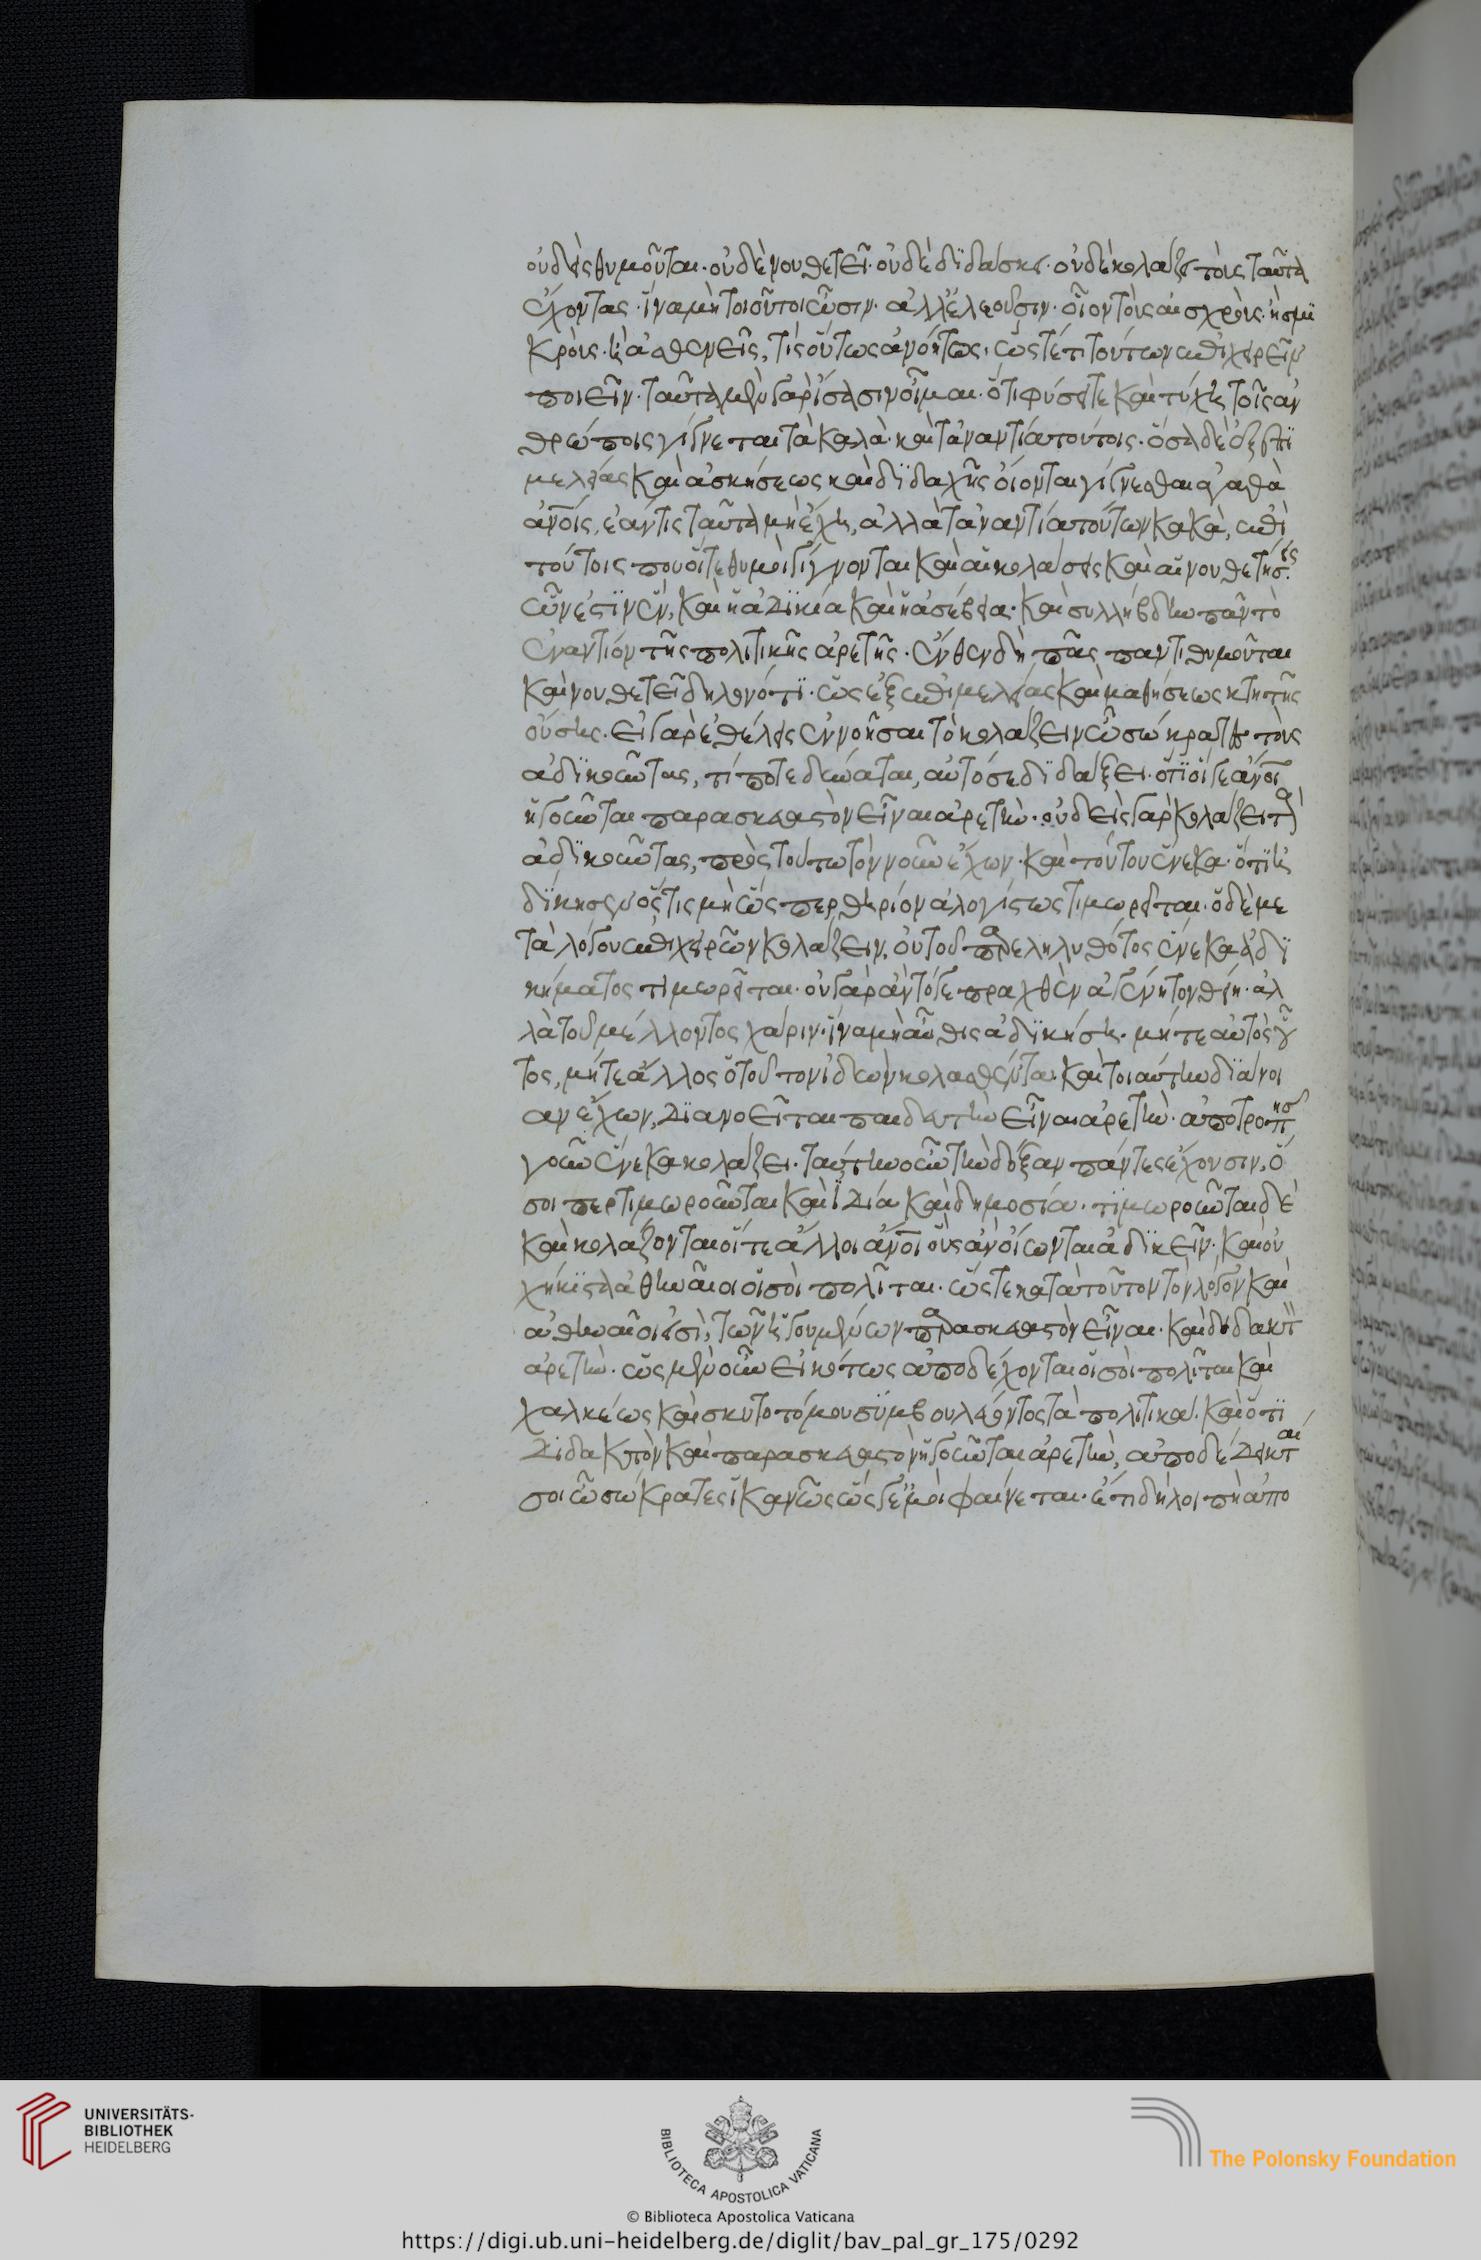 οὐδεὶς θυμοῦται· οὐδὲ νουθετεῖ· οὐδὲ διδάσκει· οὐδὲ κολάζει τοὺς ταῦτα
ἔχοντας· ἵνα μὴ τοιοῦτοι ὦσιν· ἀλλ' ἐλεοῦσιν· οἷον τοὺς αἰσχροὺς· ἢ σμι
κροὺς· ἢ ἀσθενεῖς, τίς οὕτως ἀνόητως· ὥς τέ τι τούτων ἐπιχειρεῖν
ποιεῖν· ταῦτα μὲν γὰρ ἴσασιν οἶμαι· ὅτι φύσει τε καὶ τύχη τοῖς ἀν
θρώποις γίγνεται τὰ καλὰ· καὶ τἀναντία τούτοις· ὅσα δὲ ἐξ ἐπι
μελείας καὶ ἀσκήσεως καὶ διδαχῆς οἴονται γίγνεσθαι ἀγαθὰ
ἀν̅οις, ἐάν τις ταῦτα μὴ ἔχη, ἀλλὰ τἀναντία τούτων κακὰ, ἐπὶ
τούτοις που οἵ τε θυμοὶ γίγνονται καὶ αἱ κολάσεις καὶ αἱ νουθετήσεις·
ὧν ἐστὶν ἓν, καὶ ἡ ἀδικία καὶ ἡ ἀσέβεια· καὶ συλλήβδην πᾶν τὸ
ἐναντίον τῆς πολιτικῆς ἀρετῆς· ἔνθεν δὴ πᾶς παντὶ θυμοῦται
καὶ νουθετεῖ δηλονότι· ὡς ἐξ ἐπιμελείας καὶ μαθήσεως κτητῆς
οὔσης· εἰ γὰρ ἐθέλεις ἐννοῆσαι τὸ κολάζειν ὦ σώκρατες τοὺς
ἀδικοῦντας, τί ποτε δύναται, αὐτό σε διδάξει· ὅτι οἵ γε ἀν̅οι
ἡγοῦνται παρασκευαστὸν εἶναι ἀρετήν· οὐδεὶς γὰρ κολάζει τοὺς
ἀδικοῦντας, πρὸς τούτω τὸν νοῦν ἔχων· καὶ τούτου ἕνεκα· ὅτι ἠ
δίκησεν· ὅς τις μὴ ὥς περ θηρίον ἀλογίστως τιμωρεῖται· ὁ δὲ με
τὰ λόγου ἐπιχειρῶν κολάζειν, οὐ τοῦ παρεληλυθότος ἕνεκα ἀδι
κήματος τιμωρεῖται· οὐ γὰρ ἂν τό γε πραχθὲν ἀγένητον θείη· ἀλ
λὰ τοῦ μέλλοντος χάριν· ἵνα μὴ αὖθις ἀδικήση· μήτε αὐτὸς οὗ
τος, μήτε ἄλλος ὁ τοῦτον ἰδὼν κολασθέντα· καὶ τοιαύτην διάνοι
αν ἔχων, διανοεῖται παιδευτὴν εἶναι ἀρετήν· ἀποτροπῆς
γοῦν ἕνεκα κολάζει· ταύτην οὖν τὴν δόξαν πάντες ἔχουσιν, ὅ
σοι περ τιμωροῦνται καὶ ἰδία καὶ δημοσία· τιμωροῦνται δὲ
καὶ κολάζονται οἵ τε ἄλλοι ἀν̅οι οὓς ἂν οἴωνται ἀδικεῖν· καὶ οὐ
χ ἥκιστα ἀθηναῖοι οἱ σοὶ πολῖται· ὥς τε κατὰ τοῦτον τὸν λόγον καὶ
ἀθηναῖοί εἰσὶ, τῶν ἡγουμένων παρασκευαστὸν εἶναι· καὶ διδακτὸν
ἀρετήν· ὡς μὲν οὖν εἰκότως ἀποδέχονται οἱ σοὶ πολῖται καὶ
χαλκέως καὶ σκυτοτόμου συμβουλεύοντος τὰ πολιτικά· καὶ ὅτι
διδακτὸν καὶ παρασκευαστὸν ἡγοῦνται ἀρετὴν, ἀποδέδεικταί
σοι ὦ σώκρατες ἱκανῶς ὥς γ' ἐμοὶ φαίνεται· ἔτι δὴ λοιπὴ ἀπο
UNIVERSITÄTS-
BIBLIOTHEK
HEIDELBERG
BIBLIOTECA APOSTOLICA VATICANA
© Biblioteca Apostolica Vaticana
The Polonsky Foundation
https://digi.ub.uni-heidelberg.de/diglit/bav_pal_gr_175/0292